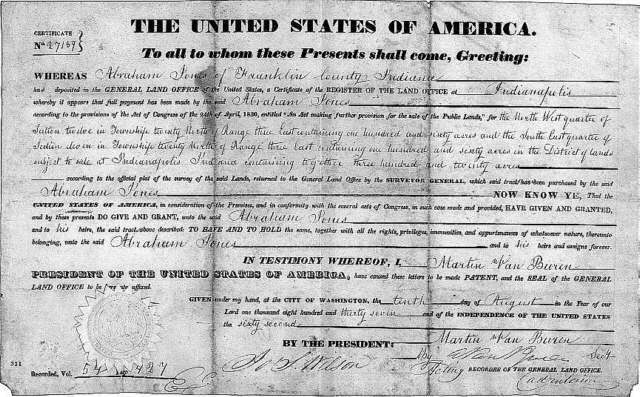 THE UNITED STATES OF AMERICA.
CERTIFICATE
No. 27159
To all to whom these Presents shall come, Greeting:
WHEREAS Abraham Jones of Franklin County Indiana
had deposited in the GENERAL LAND OFFICE of the United States, a Certificate of the REGISTER OF THE LAND OFFICE at Indianapolis
whereby it appears that full payment has been made by the said Abraham Jones
according to the provisions of the Act of Congress of the 24th of April, 1820, entitled "An Act making further provision for the sale of the Public Lands," for the North West quarter of
Section twelve in Township twenty North of Range three East containing one hundred and sixty acres and the South East quarter of
Section in Township twenty North of Range three East containing one hundred and sixty acres in the District of lands
subject to sale at Indianapolis Indiana containing together three hundred and twenty acres
according to the official plat of the survey of the said Lands, returned to the General Land Office by the SURVEYOR GENERAL, which said tract has been purchased by the said
Abraham Jones NOW KNOW YE, That the
UNITED STATES OF AMERICA, in consideration of the Premises, and in conformity with the several acts of Congress, in such case made and provided, HAVE GIVEN AND GRANTED,
and by these presents DO GIVE AND GRANT, unto the said Abraham Jones
and to his heirs, the said tract above described: TO HAVE AND TO HOLD the same, together with all the rights, privileges, immunities, and appurtenances of whatsoever nature, thereunto
belonging, unto the said Abraham Jones and to his heirs and assigns forever.
IN TESTIMONY WHEREOF, I, Martin Van Buren
PRESIDENT OF THE UNITED STATES OF AMERICA, have caused these letters to be made PATENT, and the SEAL of the GENERAL
LAND OFFICE to be hereunto affixed.
GIVEN under my hand, at the CITY OF WASHINGTON, the tenth day of August in the Year of our
Lord one thousand eight hundred and thirty seven and of the INDEPENDENCE OF THE UNITED STATES
the sixty second
BY THE PRESIDENT: Martin Van Buren
By Sec'y
Acting RECORDER OF THE GENERAL LAND OFFICE.
ad interim
Recorded, Vol. 54 Page 427